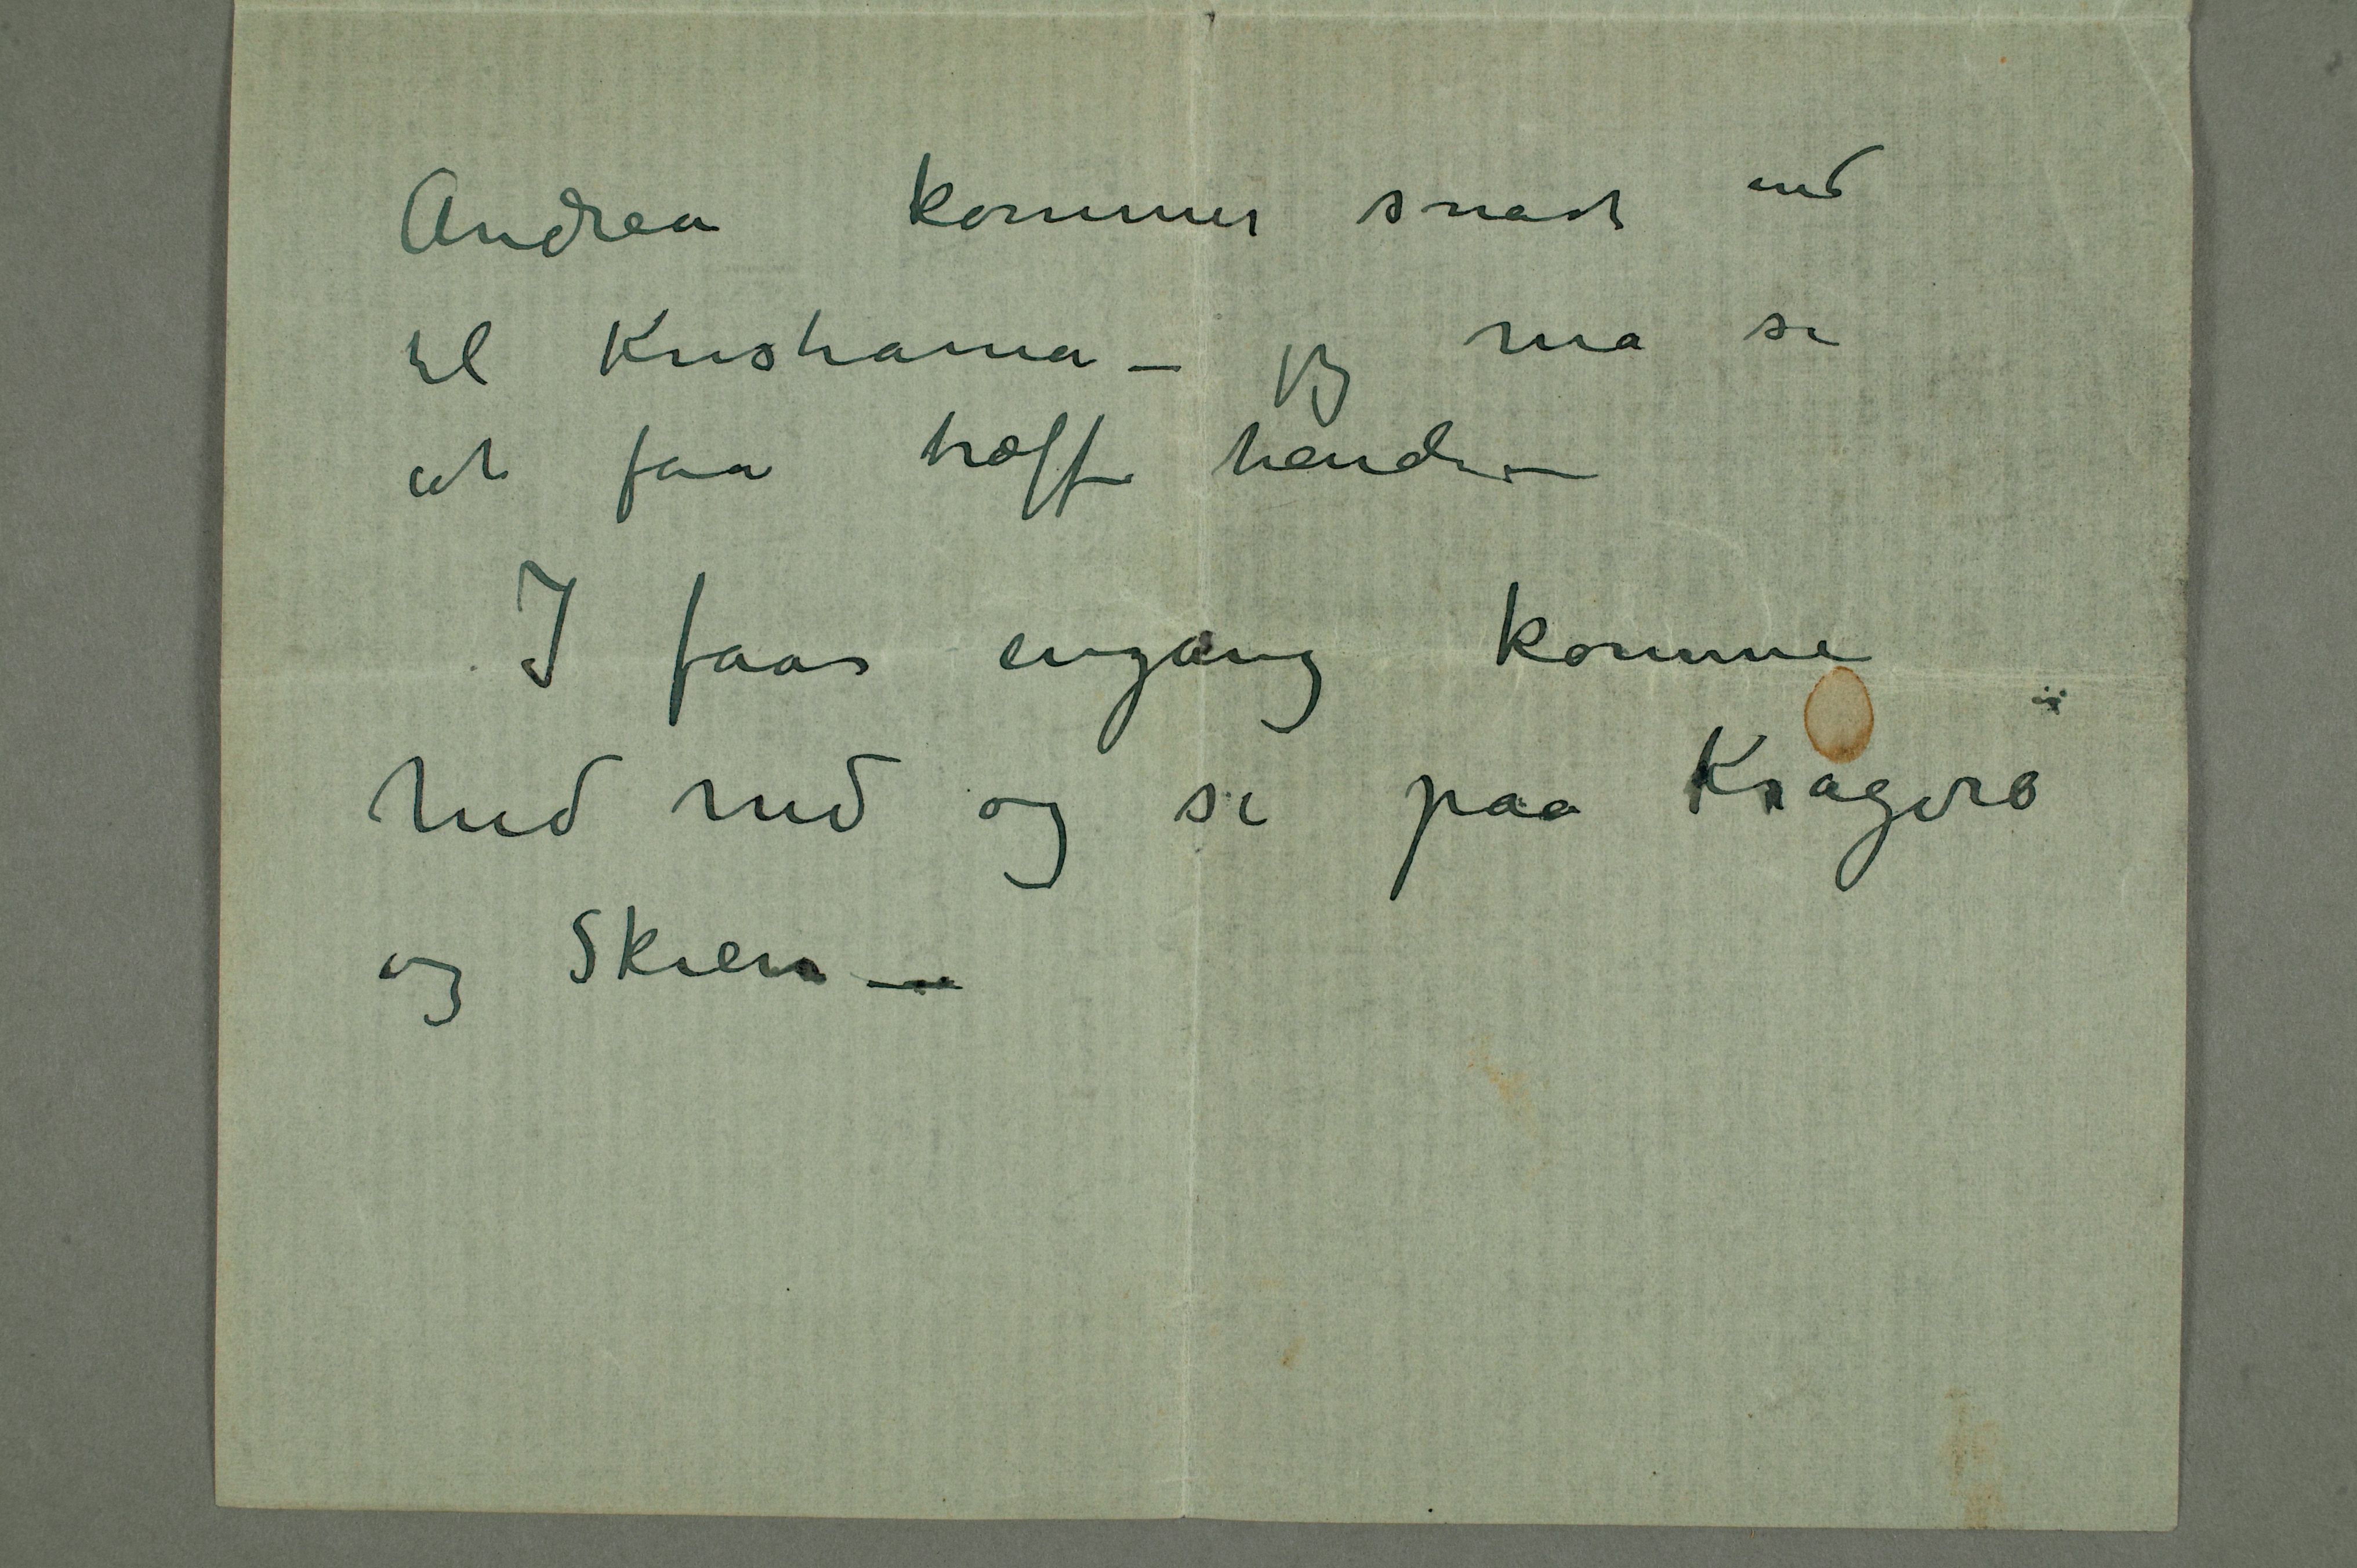 Andrea kommer snart ind
til Kristiania – jeg må se
at faa træffe hende. –
I faar engang komme
hid ned og se paa Kragerö
og Skien –